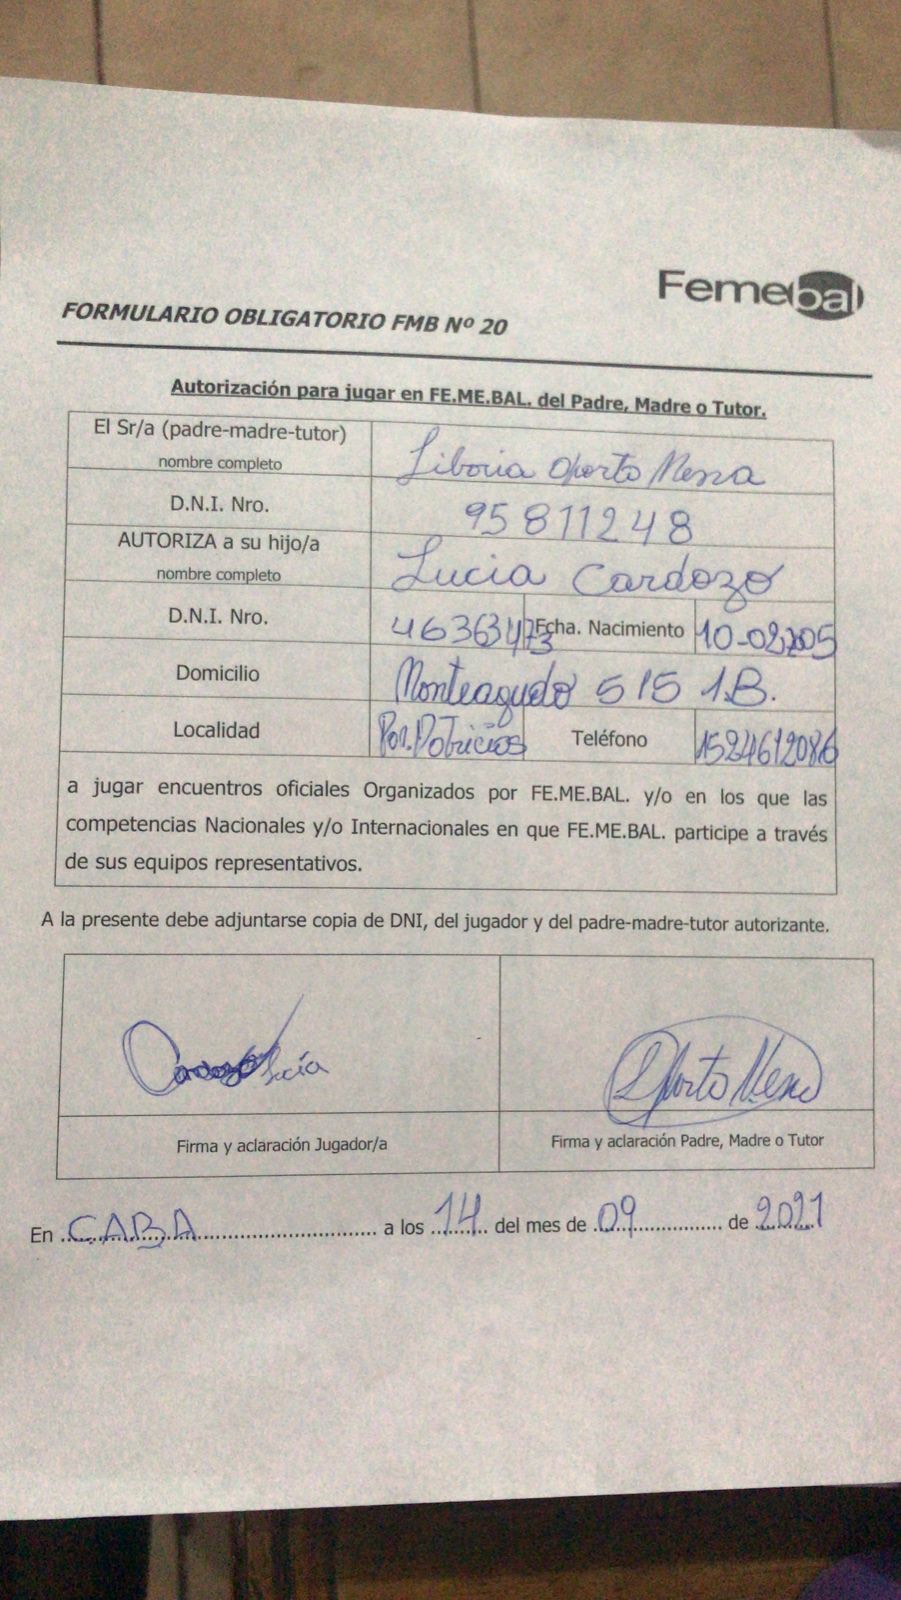 Femebal
FORMULARIO OBLIGATORIO FMB Nº 20
Autorización para jugar en FE.ME.BAL. del Padre, Madre o Tutor.
El Sr/a (padre-madre-tutor)
nombre completo
Liboria Oporto Mesa
D.N.I. Nro.
95811248
AUTORIZA a su hijo/a
nombre completo
Lucia Cardozo
D.N.I. Nro.
46363473
Fcha. Nacimiento
10-02-2005
Domicilio
Monteagudo 515 1.B.
Localidad
Par. Patricios
Teléfono
1524612086
a jugar encuentros oficiales Organizados por FE.ME.BAL. y/o en los que las
competencias Nacionales y/o Internacionales en que FE.ME.BAL. participe a través
de sus equipos representativos.
A la presente debe adjuntarse copia de DNI, del jugador y del padre-madre-tutor autorizante.
Cardozo Lucía
Oporto Mesa
Firma y aclaración Jugador/a
Firma y aclaración Padre, Madre o Tutor
En CABA a los 14 del mes de 09 de 2021